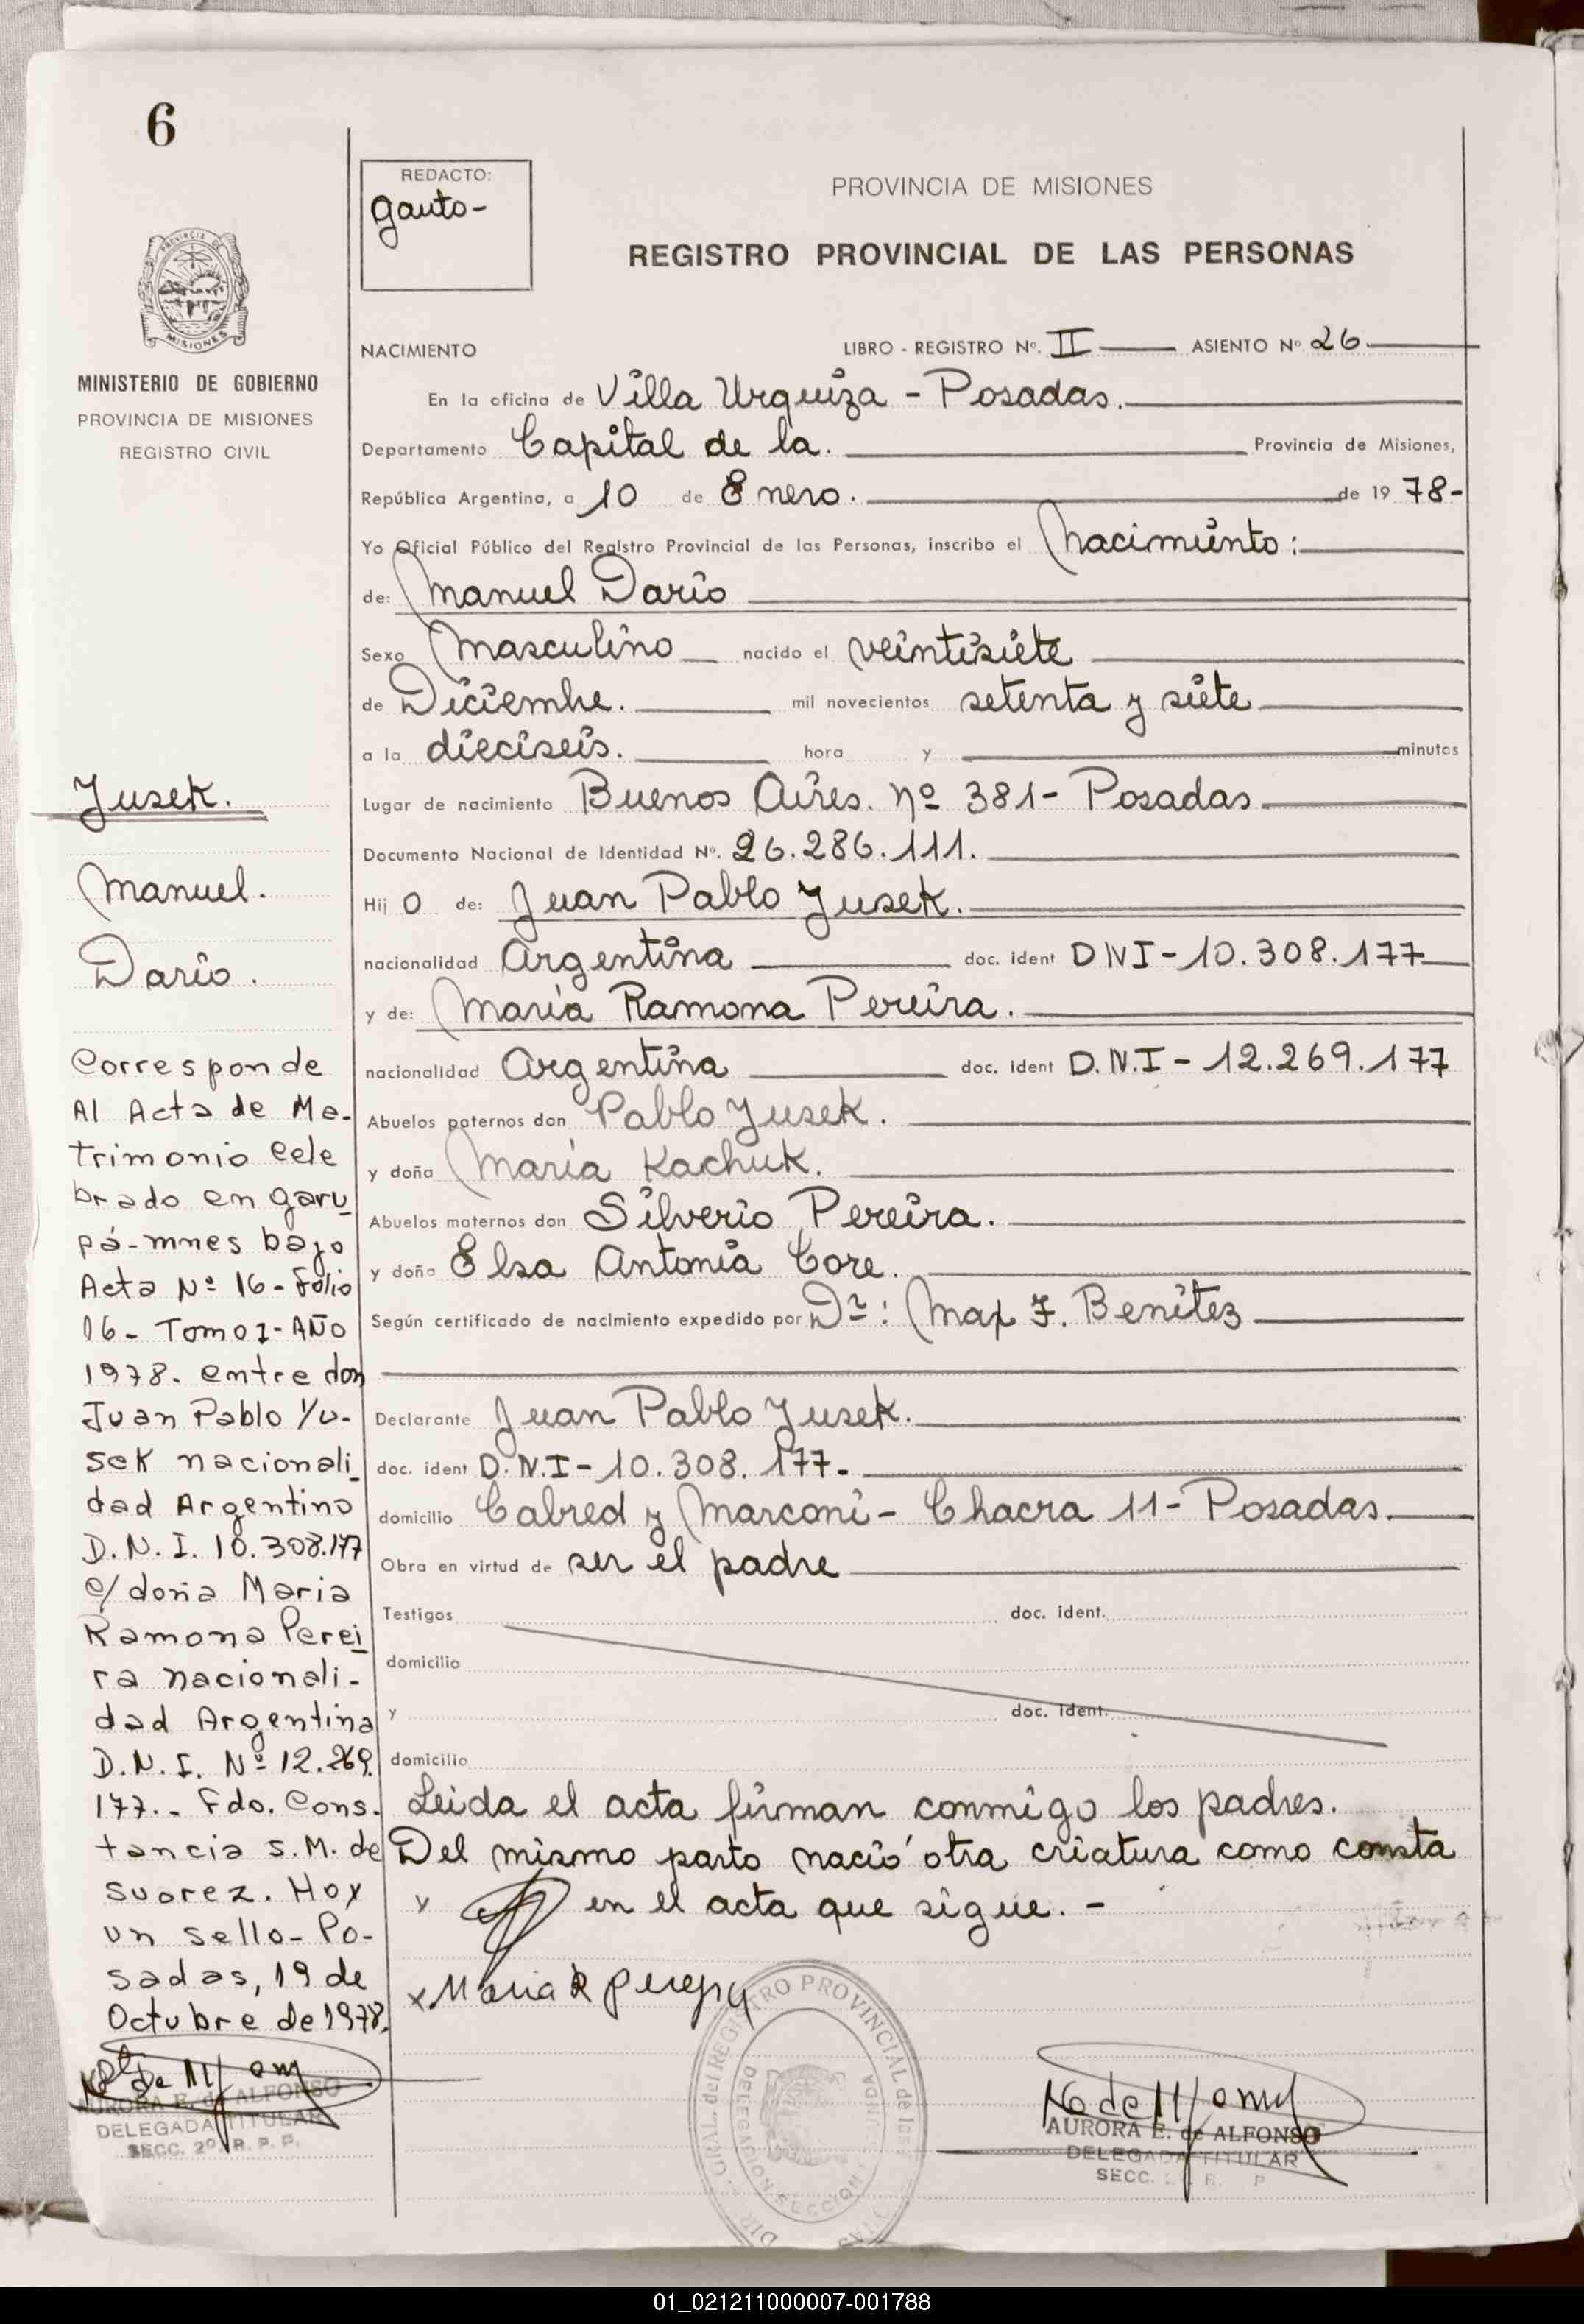 6
REDACTO:
Gauto-
PROVINCIA DE MISIONES
REGISTRO PROVINCIAL DE LAS PERSONAS
PROVINCIA DE
MISIONES
MINISTERIO DE GOBIERNO
PROVINCIA DE MISIONES
REGISTRO CIVIL
NACIMIENTO LIBRO - REGISTRO Nº. II ASIENTO Nº 26
En la oficina de Villa Urquiza - Posadas.
Departamento Capital de la. Provincia de Misiones,
República Argentina, a 10 de Enero. de 19 78-
Yo Oficial Público del Registro Provincial de las Personas, inscribo el Nacimiento:
de: Manuel Darío
Sexo Masculino nacido el veintisiete
de Diciembre. mil novecientos setenta y siete
a la dieciseis. hora y minutos
Lugar de nacimiento Buenos Aires. Nº 381- Posadas
Documento Nacional de Identidad Nº. 26.286.111.
Hij o de: Juan Pablo Yusek.
nacionalidad Argentina doc. ident DNI-10.308.177
y de: María Ramona Pereira.
nacionalidad Argentina doc. ident D.N.I- 12.269.177
Abuelos paternos don Pablo Yusek.
y doña María Kachuk.
Abuelos maternos don Silverio Pereira.
y doña Elsa Antonia Core.
Según certificado de nacimiento expedido por Dr: Max F. Benítez
Declarante Juan Pablo Yusek.
doc. ident D.N.I-10.308.177-
domicilio Cabred y Marconi- Chacra 11- Posadas.
Obra en virtud de ser el padre
Testigos doc. ident.
domicilio
y doc. ident.
domicilio
Leida el acta firman conmigo los padres.
Del mismo parto nació otra criatura como consta
x en el acta que sigue.-
x Maria R
Yusek.
Manuel.
Darío.
Corresponde
Al Acta de Ma-
trimonio Cele
brado en Garu
pá-mnes bajo
Acta Nº 16-Folio
16- Tomo I-AÑO
1978. entre don
Juan Pablo Yu-
sek nacionali
dad Argentino
D.N.I. 10.308.177
c/ doña Maria
Ramona Perei
ra nacionali-
dad Argentina
D.N.I. Nº 12.269.
177.- Fdo. Cons.
tancia S.M. de
Suarez. Hay
un sello- Po-
sadas, 19 de
Octubre de 1978.
AURORA E. de ALFONSO
DELEGADA TITULAR
SECC. 2º R. P. P.
REGISTRO PROVINCIAL de las
DELEGACION SECCION
AURORA E. de ALFONSO
DELEGADA TITULAR
SECC.
01_021211000007-001788